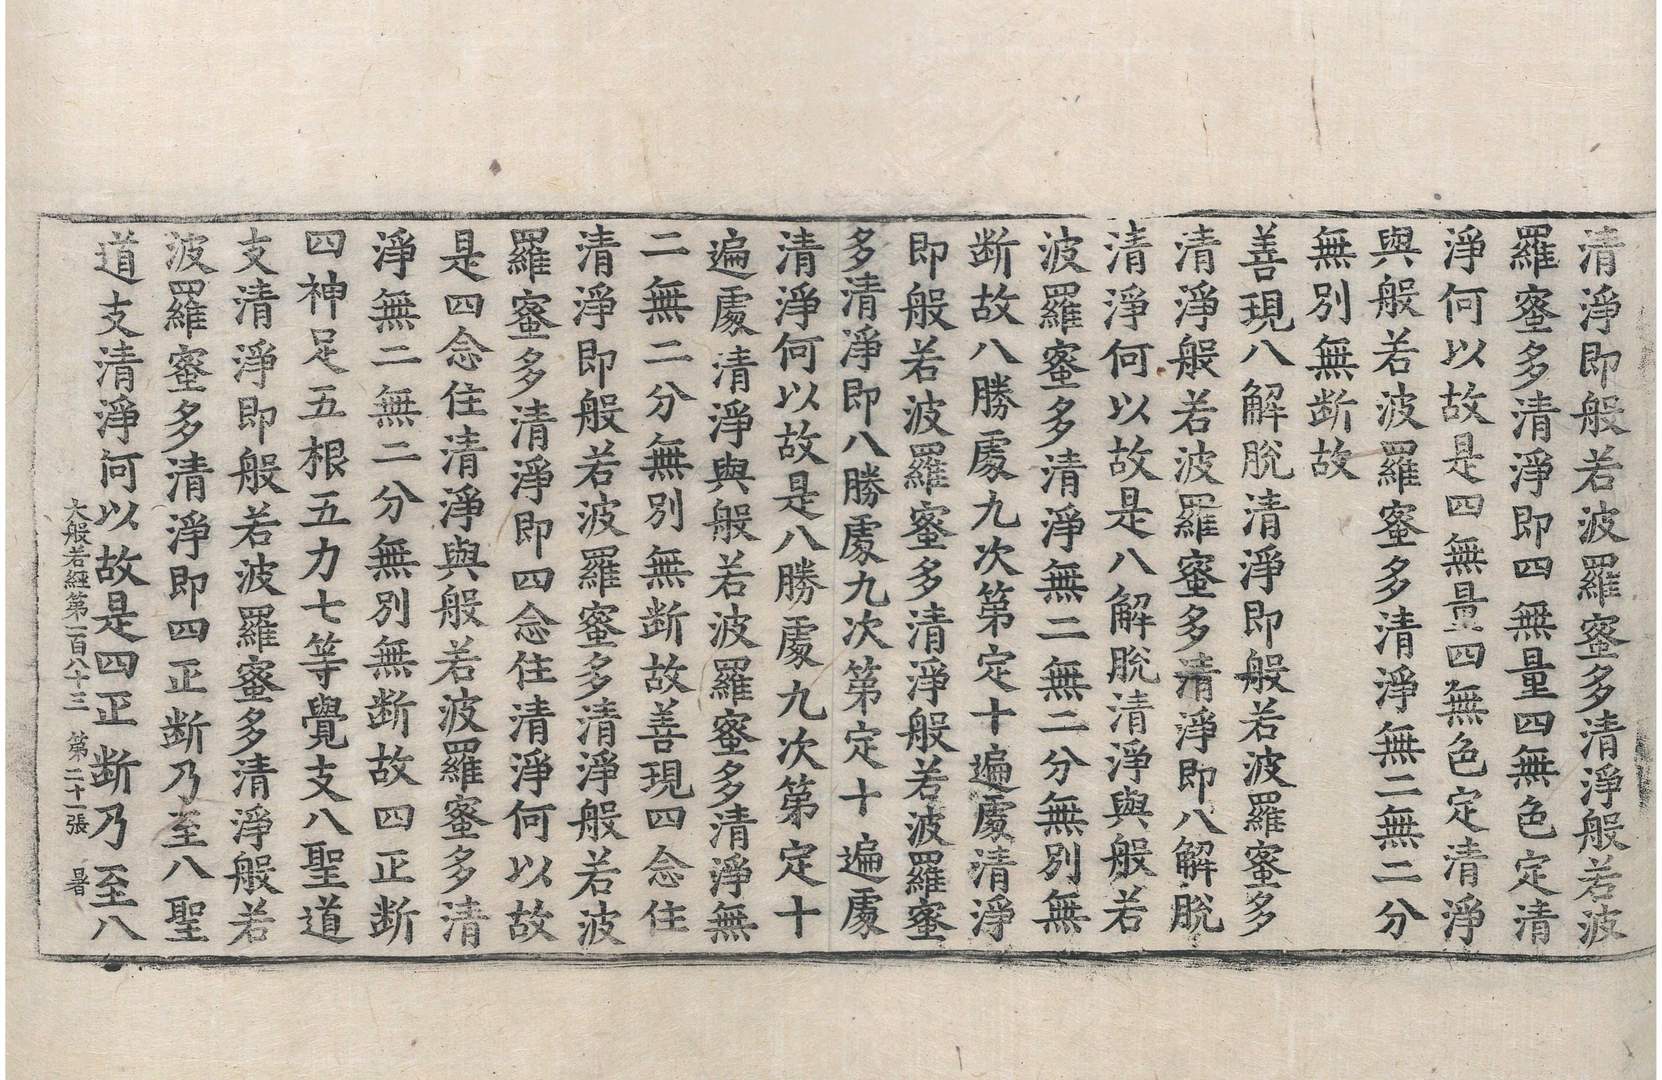 清淨即般若波羅蜜多清淨般若波
羅蜜多清淨即四無量四無色定清
淨何以故是四無量四無色定清淨
與般若波羅蜜多清淨無二無二分
無別無断故
善現八解脫清淨即般若波羅蜜多
清淨般若波羅蜜多清淨即八解脫
清淨何以故是八解脫清淨與般若
波羅蜜多清淨無二無二分無別無
断故八勝處九次第定十遍處清淨
即般若波羅蜜多清淨般若波羅蜜
多清淨即八勝處九次第定十遍處
清淨何以故是八勝處九次第定十
遍處清淨與般若波羅蜜多清淨無
二無二分無別無断故善現四念住
清淨即般若波羅蜜多清淨般若波
羅蜜多清淨即四念住清淨何以故
是四念住清淨與般若波羅蜜多清
淨無二無二分無別無断故四正断
四神足五根五力七等覺支八聖道
支清淨即般若波羅蜜多清淨般若
波羅蜜多清淨即四正断乃至八聖
道支清淨何以故是四正断乃至八
大般若經第一百八十三 第二十一張 暑